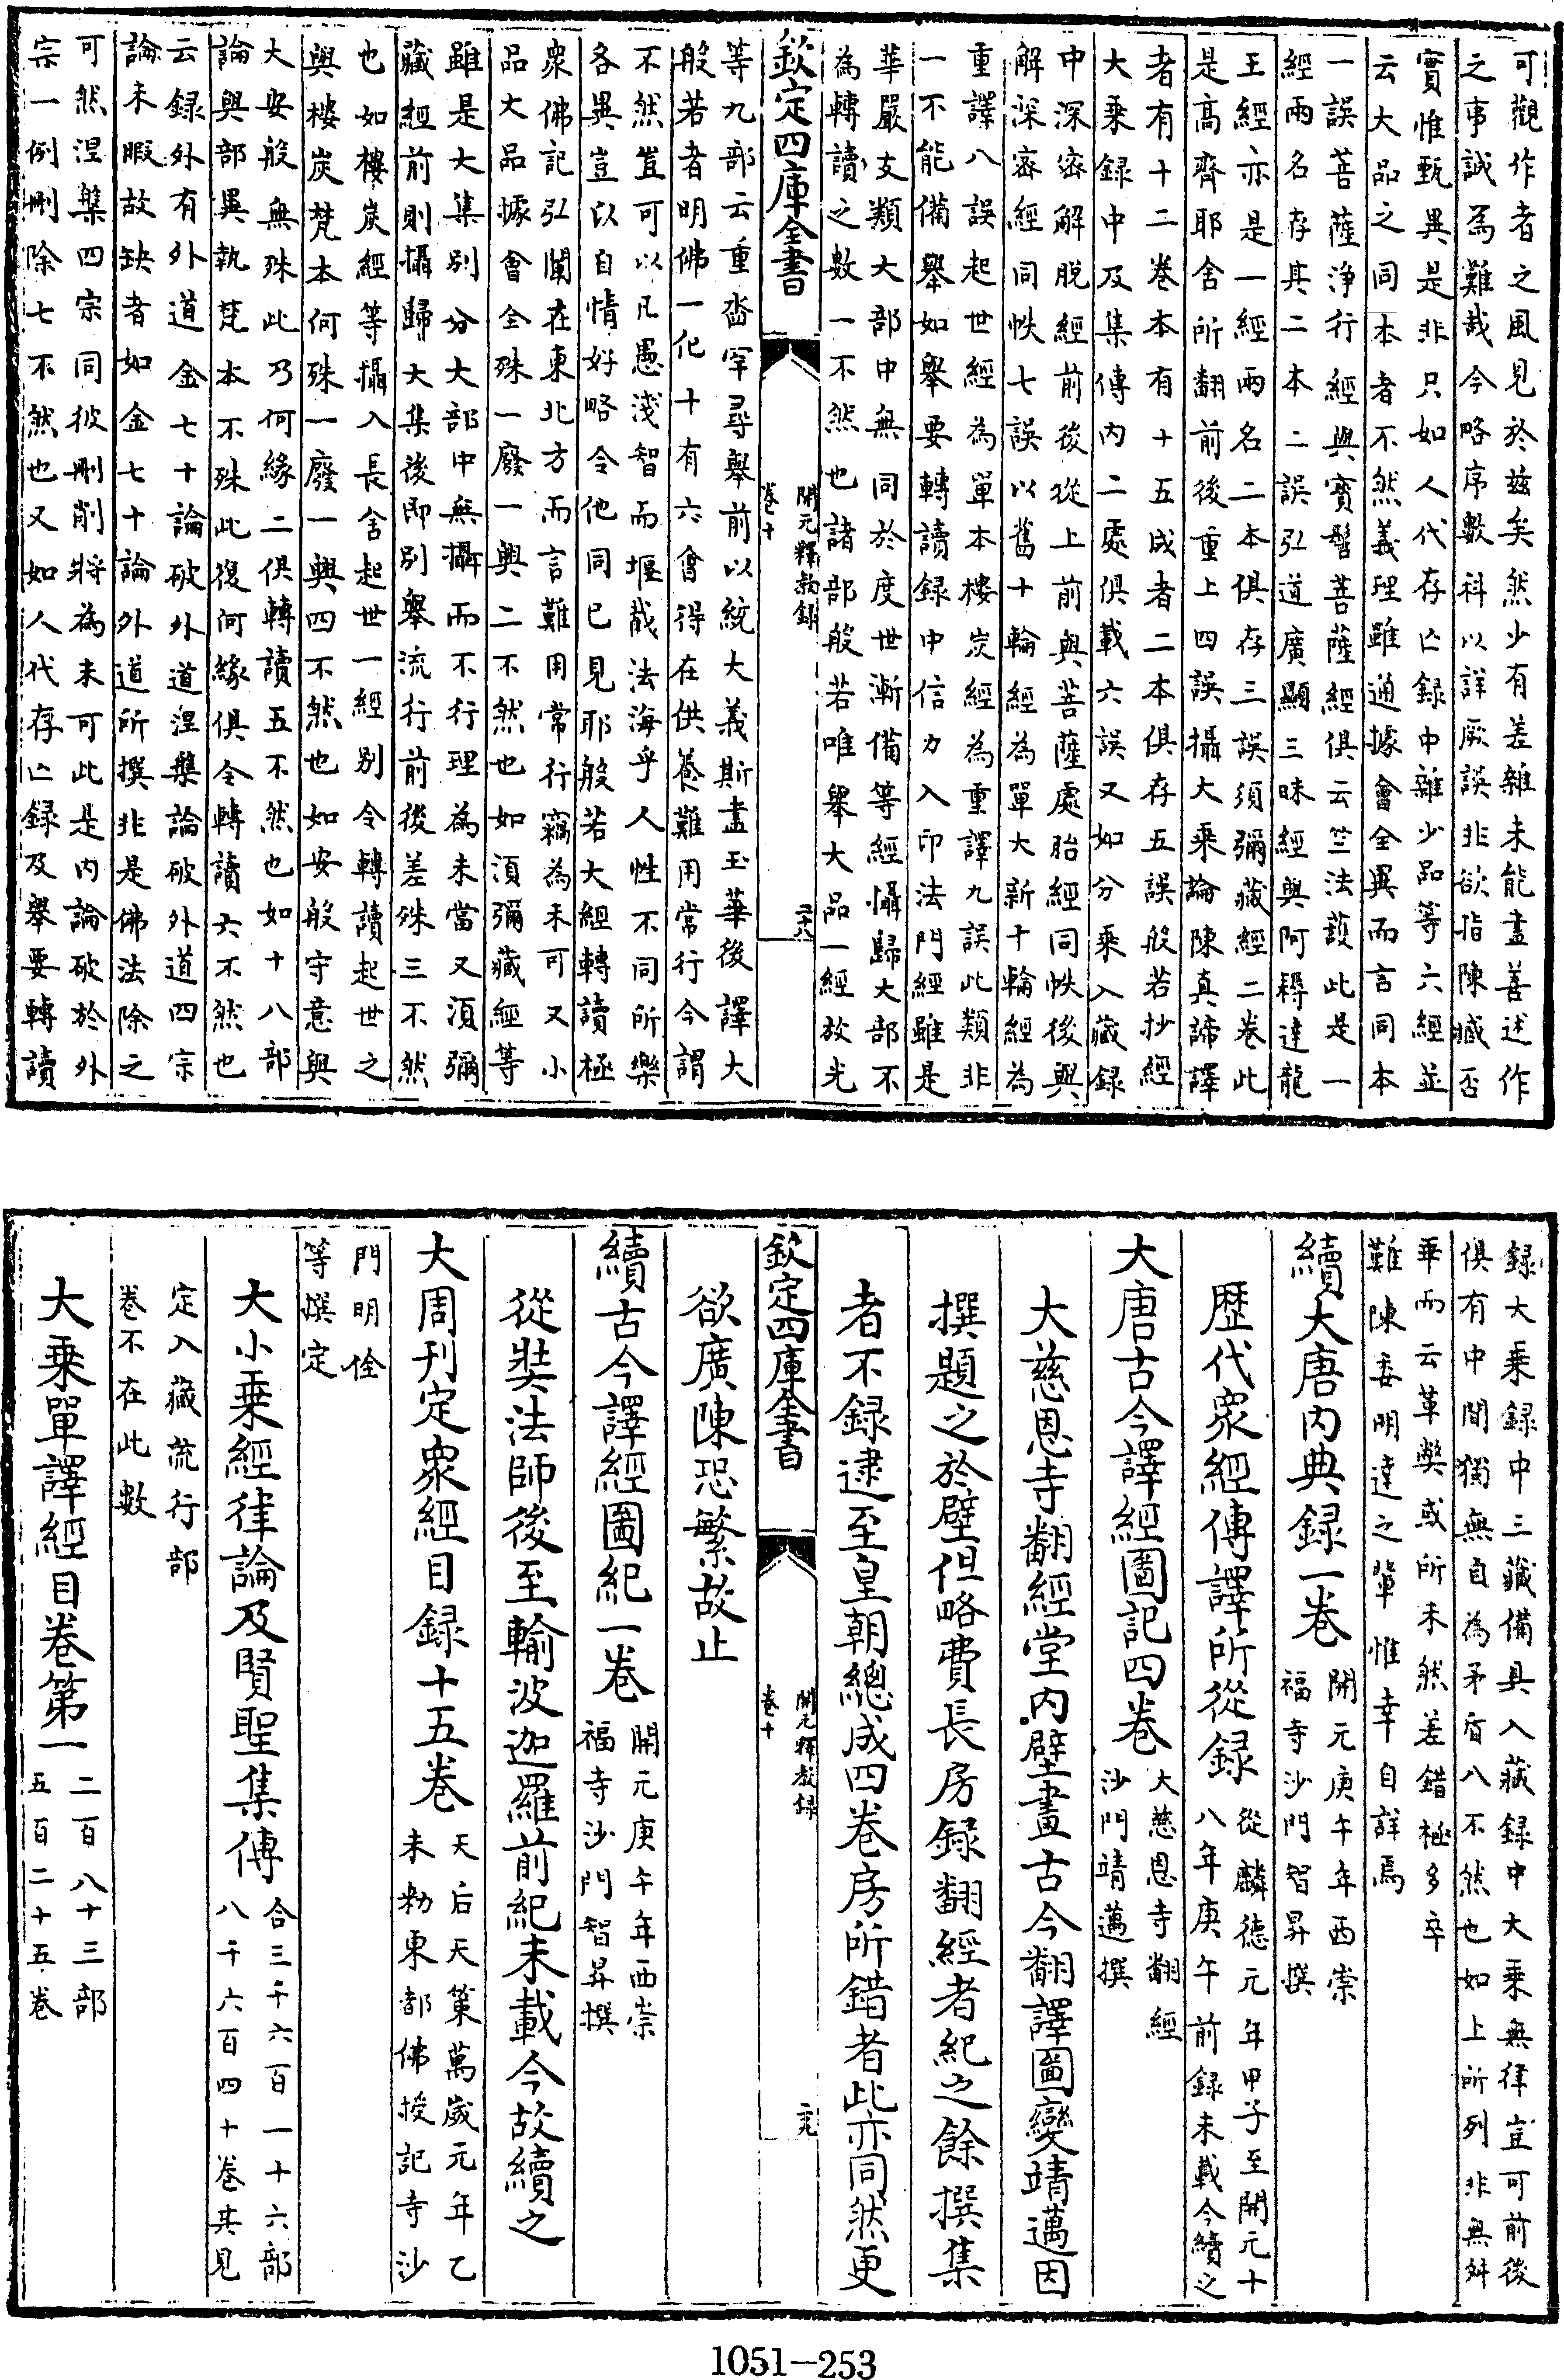 可觀作者之風見於兹矣然少有差雜未能盡善述作
之事誠爲難哉今略序數科以詳厥誤非欲指陳臧否
實惟甄異是非只如人代存亡録中雜少品等六經並
云大品之同本者不然義理雖通據會全異而言同本
一誤菩薩浄行經與寳髻菩薩經俱云竺法護此是一
經兩名存其二本二誤弘道廣顯三昧經與阿耨達龍
王經亦是一經兩名二本俱存三誤須彌藏經二卷此
是高齊耶舍所翻前後重上四誤攝大乗論陳真諦譯
者有十二卷本有十五成者二本俱存五誤般若抄經
大乗録中及集傳内二處俱載六誤又如分乗入藏録
中深宻解脫經前後從上前與菩薩處胎經同帙後與
解深宻經同帙七誤以舊十輪經為單大新十輪經為
重譯八誤起世經為單本樓炭經為重譯九誤此類非
一不能備舉如舉要轉讀録中信力入印法門經雖是
華嚴支類大部中無同於度世漸備等經懾歸大部不
為轉讀之數一不然也諸部般若唯舉大品一經放光
欽定四庫全書
開元釋教録
卷十
二十八
等九部云重沓罕尋舉前以統大義斯盡玉華後譯大
般若者明佛一化十有六㑹得在供養難用常行今謂
不然豈可以凡愚淺智而堰截法海乎人性不同所樂
各異豈以自情好略令他同已見耶般若大經轉讀極
衆佛記弘闡在東北方而言難用常行竊為未可又小
品大品據會全殊一廢一興二不然也如湏彌藏經等
雖是大集别分大部中無攝而不行理為未當又湏彌
藏經前則攝歸大集後即别舉流行前後差殊三不然
也如樓炭經等攝入長舍起世一經别令轉讀起世之
與樓炭梵本何殊一廢一興四不然也如安般守意與
大安般無殊此乃何緣二俱轉讀五不然也如十八部
論與部異執梵本不殊此復何緣俱令轉讀六不然也
云録外有外道金七十論破外道涅槃論破外道四宗
論未暇故缺者如金七十論外道所撰非是佛法除之
可然涅槃四宗同彼刪削將為未可此是内論破於外
宗一例刪除七不然也又如人代存亡録及舉要轉讀
録大乗録中三藏備具入藏録中大乗無律豈可前後
俱有中間獨無自為矛盾八不然也如上所列非無舛
乖而云革獘或所未然差錯極多卒
難陳委明達之輩惟幸自詳焉
續大唐内典録一卷
開元庚午年西崇
福寺沙門智昇撰
歴代衆經傳譯所從録
從麟德元年甲子至開元十
八年庚午前録未載今續之
大唐古今譯經圖記四卷
大慈恩寺翻經
沙門靖邁撰
大慈恩寺翻經堂内壁畫古今翻譯圖變靖邁因
撰題之於壁但略費長房録翻經者紀之餘撰集
者不録逮至皇朝總成四卷房所錯者此亦同然更
欽定四庫全書
開元釋教録
卷十
二十九
欲廣陳恐繁故止
續古今譯經圖紀一卷
開元庚午年西崇
福寺沙門智昇撰
從奘法師後至輸波迦羅前紀未載今故續之
大周刋定衆經目録十五卷
天后天䇿萬歲元年乙
未勑東都佛授記寺沙
門明佺
等撰定
大小乗經律論及賢聖集傳
合三千六百一十六部
八千六百四十卷其見
定入藏流行部
卷不在此數
大乗單譯經目卷第一
二百八十三部
五百二十五卷
1051—253